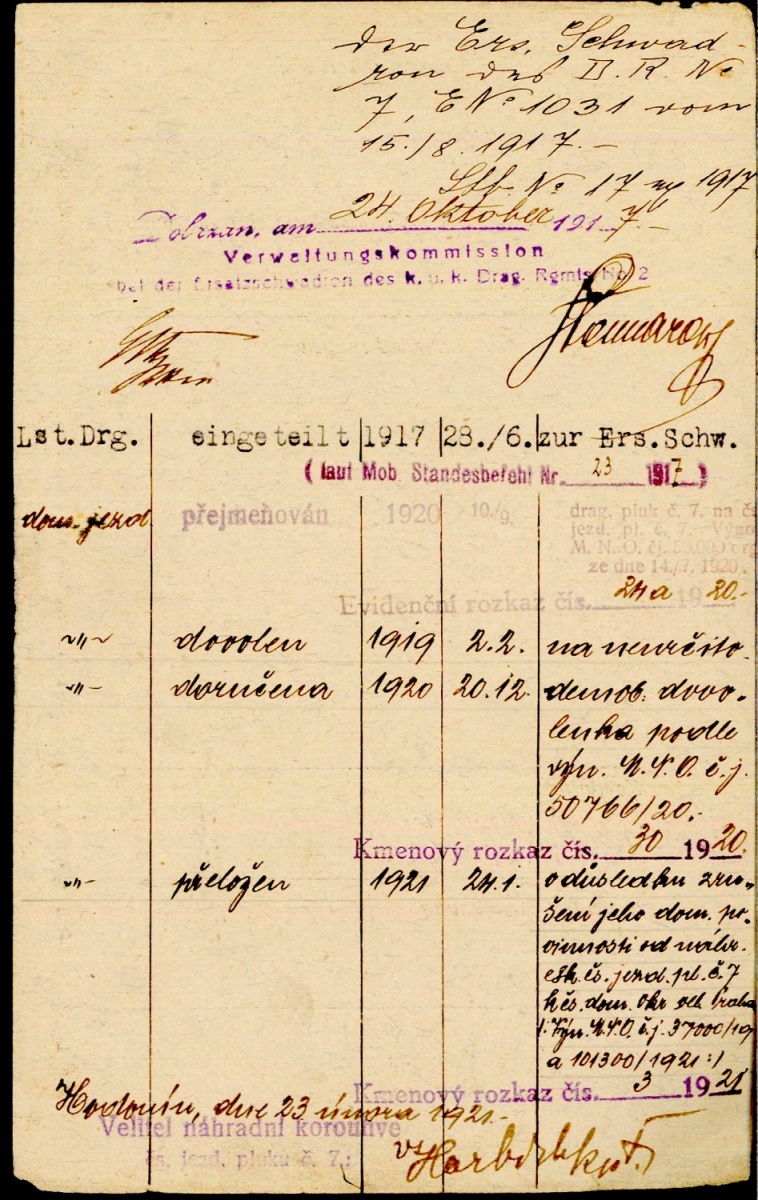 der Ers. Schwad-
ron des D. R. No
7, E No 1031 vom
15./8. 1917.-
No 17 1917
Dobrzan, am 24. Oktober 1917.-
Verwaltungskommission
bei der Ersatzschwadron des k. u. k. Drag. Rgmts No 2
Lst.Drg. eingeteilt 1917 28./6. zur Ers.Schw.
( laut Mob. Standesbefehl Nr. 23 1917 )
dom. jezd. přejmenován 1920 10./9. drag. pluk č. 7. na čs
jezd. pl. č. 7.-Výno
M. N. O. čj.
ze dne 14./7. 1920.
Evidenční rozkaz čís. 24a 1920.-
-"- dovolen 1919 2.2. na neurčito
-"- doručena 1920 20.12. demob. dovo-
lenka podle
výn. M.N.O. č.j.
50766/20.-
Kmenový rozkaz čís. 30 1920.
-"- přeložen 1921 24.1. v důsledku zru-
šení jeho dom. po-
vinnosti od náhr.
esk. čs. jezd. pl. č. 7
k čs. dom. okr. vel. Praha
/: Výn. M.N.O. č.j. 37000/19
a 101300/1921 :/
Kmenový rozkaz čís. 3 1921
Hodonín, dne 23 února 1921.-
Velitel náhradní korouhve
čs. jezd. pluku č. 7.: